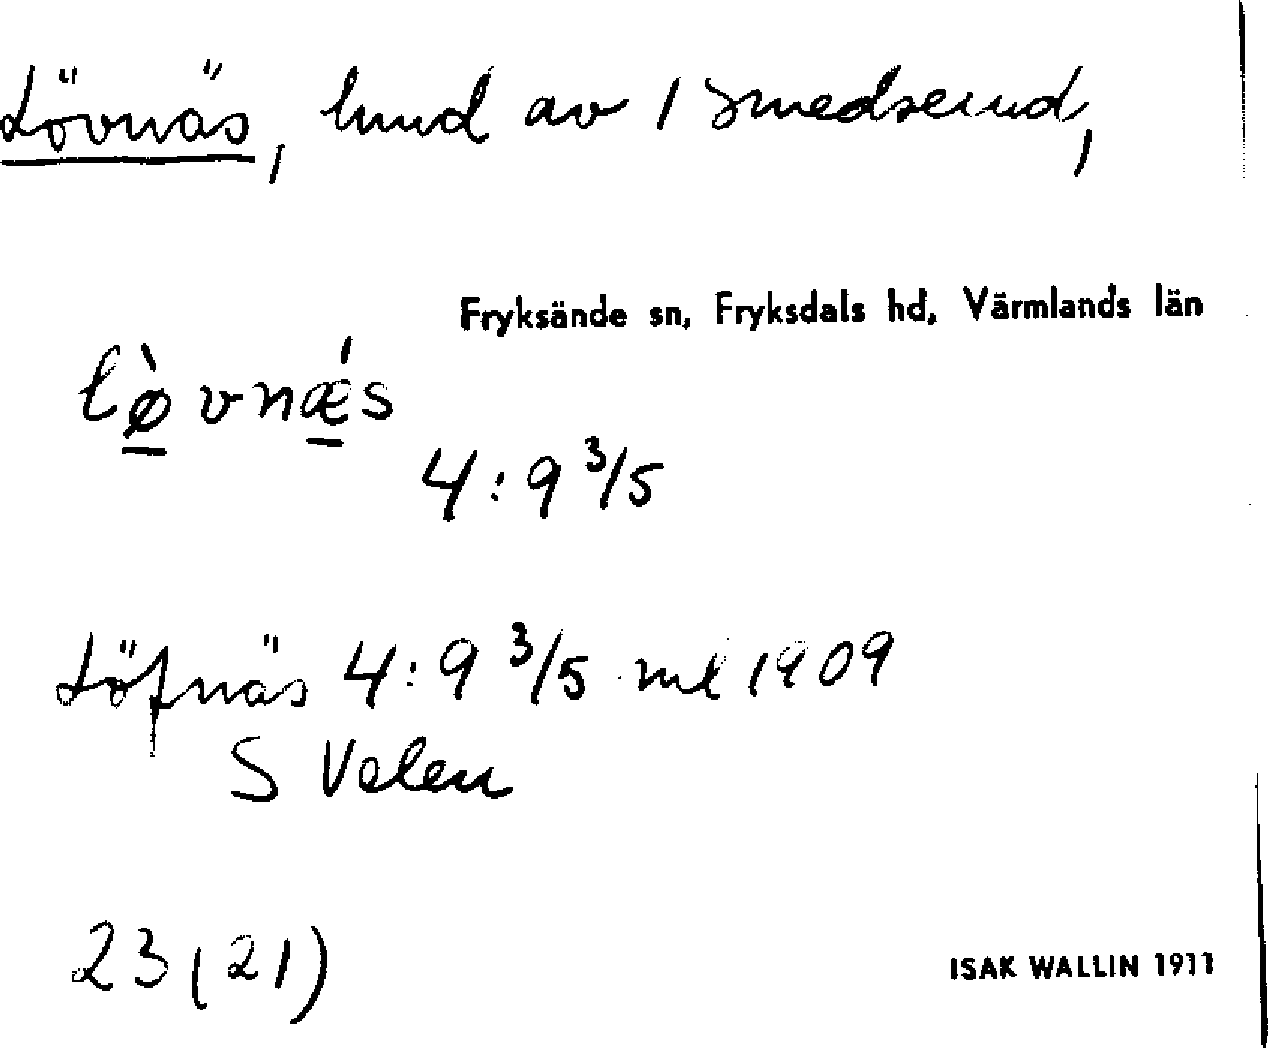 Lövnäs, hmd av 1 Smedserud,
Fryksände sn, Fryksdals hd, Värmlands län
lø̀vnǽs
4:9 3/5
Löfnäs 4:9 3/5 ml 1909
S Velen
23 (21)
ISAK WALLIN 1911